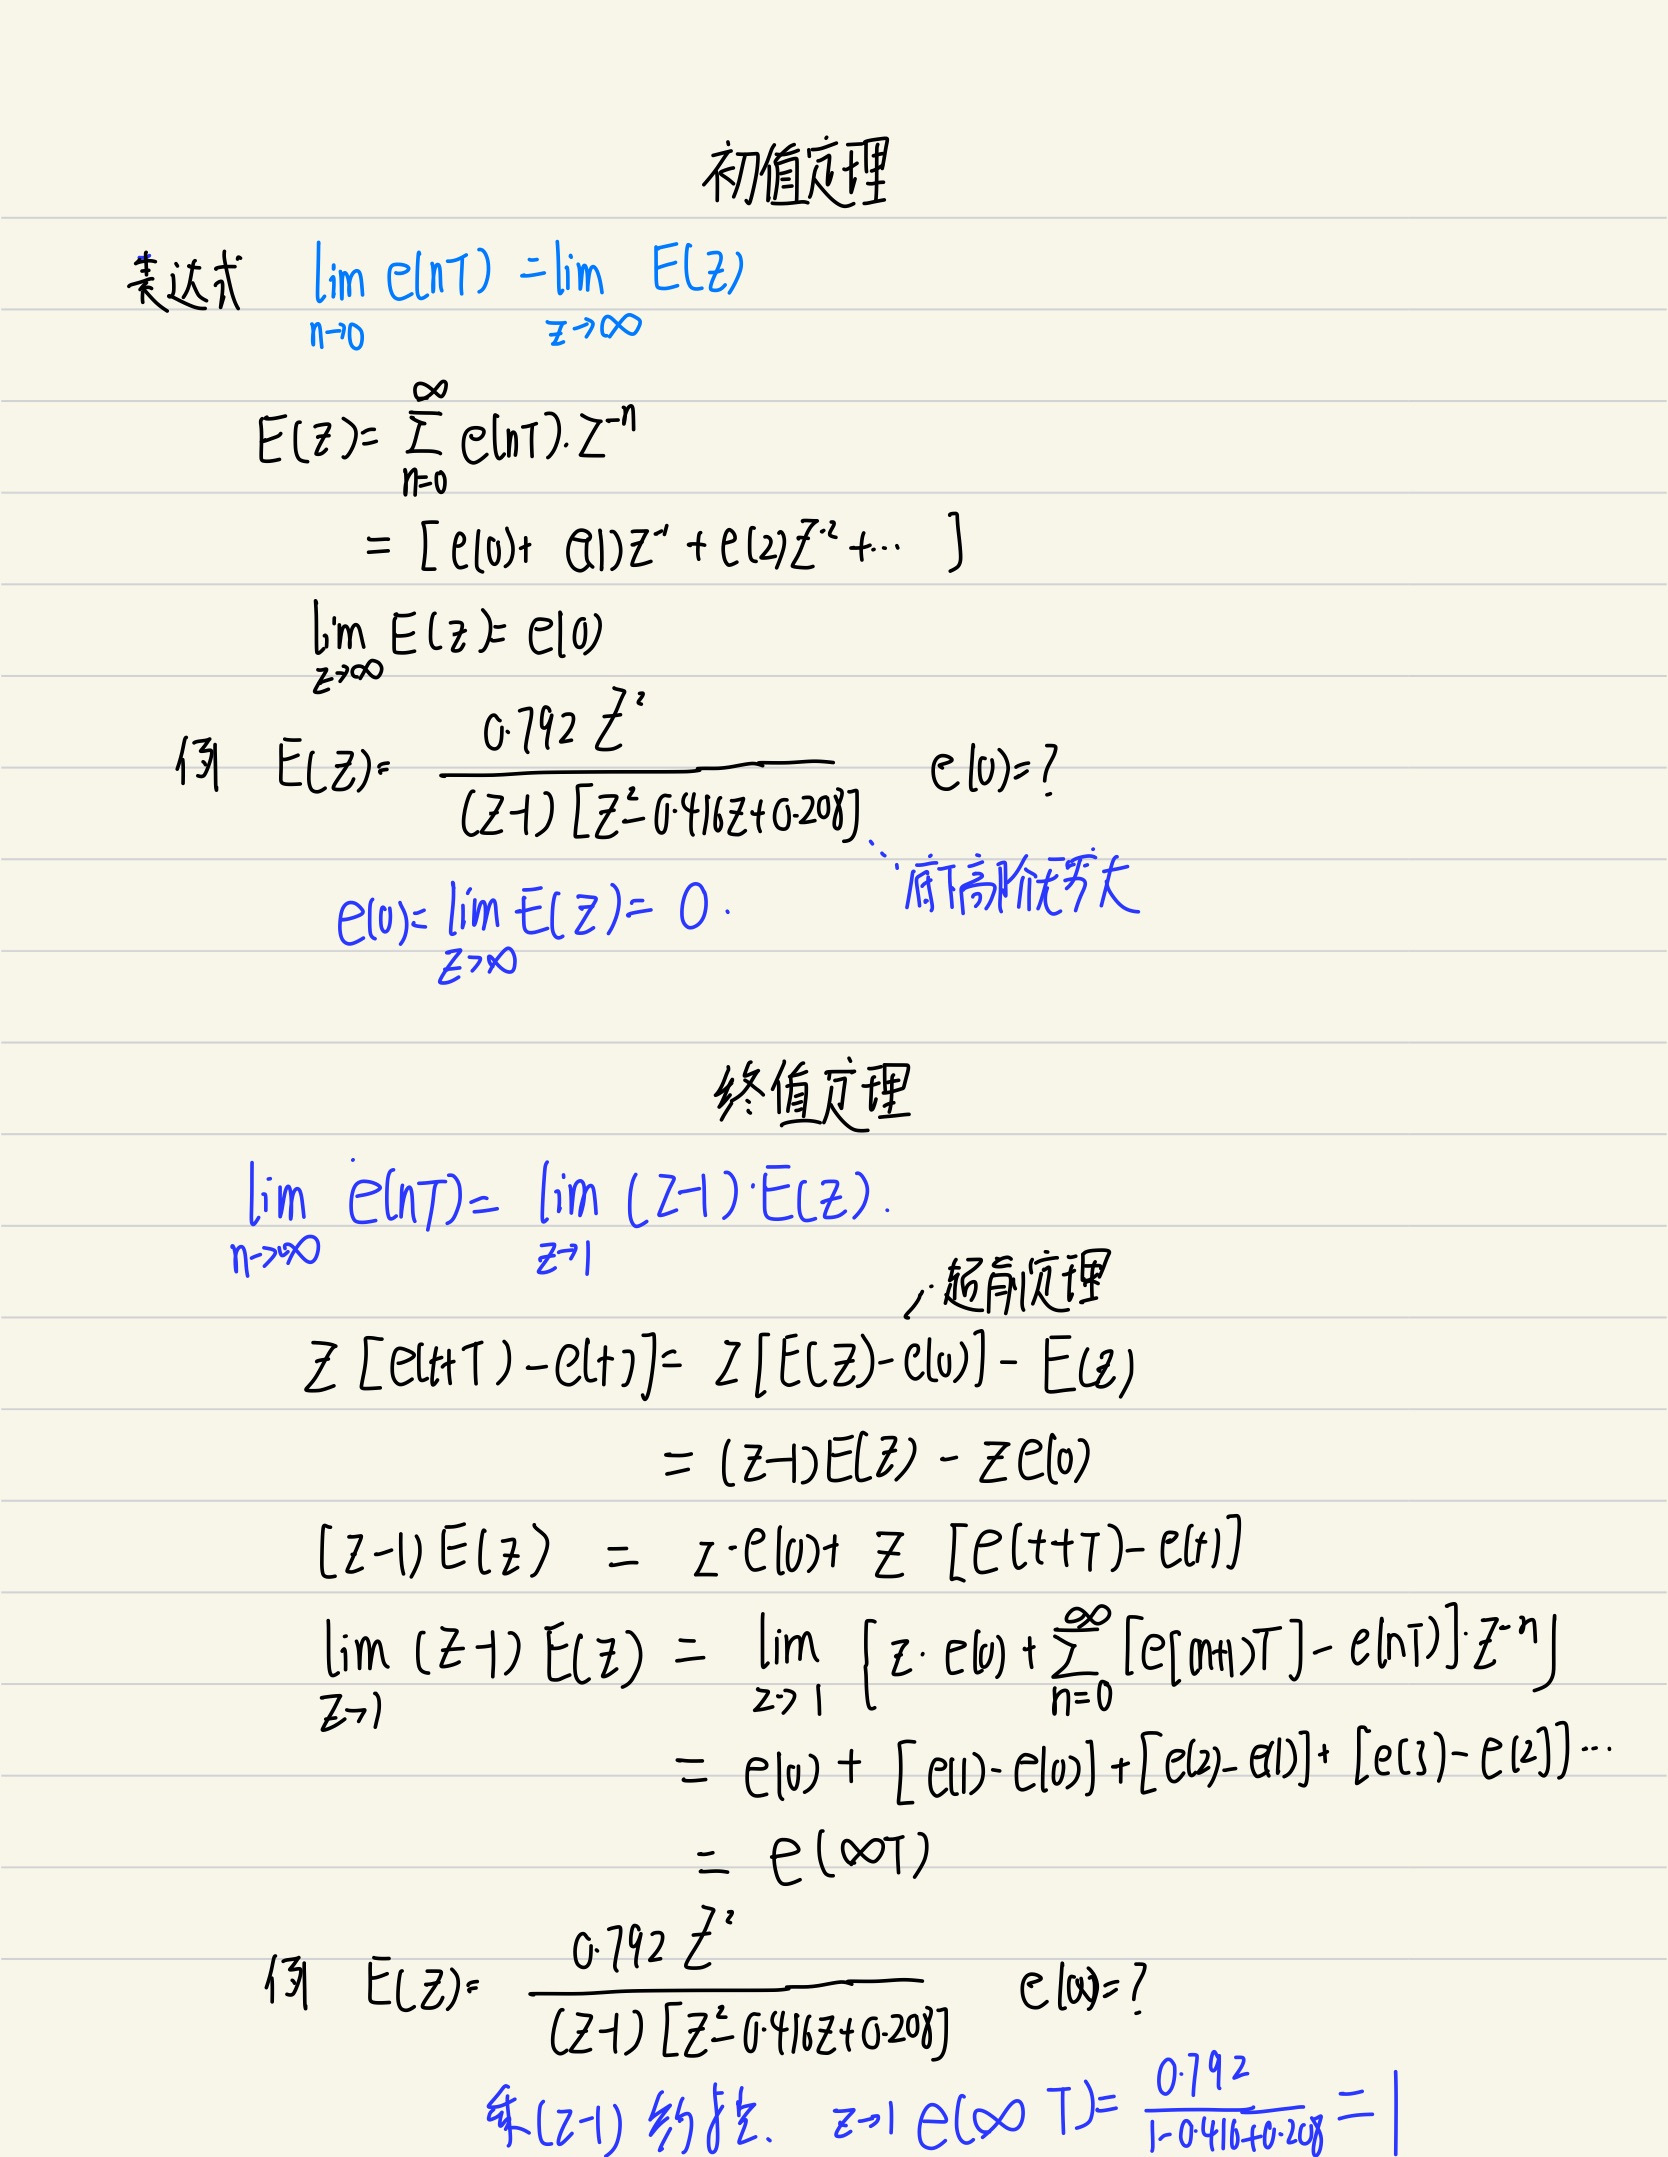 初值定理
表达式 lim e(nT) = lim E(z)
n→0 z→∞
E(z)= ∞∑n=0 e(nT)·z⁻ⁿ
= [e(0)+ e(1)z⁻¹ + e(2)z⁻² +… ]
lim E(z)= e(0)
z→∞
例 E(z)= 0.792 z² / (z-1)[z²-0.416z+0.208] e(0)=?
底下高阶无穷大
e(0)= lim E(z)= 0.
z→∞
终值定理
lim e(nT)= lim (z-1)·E(z).
n→∞ z→1
超前定理
Z [e(t+T)-e(t)]= z[E(z)-e(0)] - E(z)
= (z-1)E(z) - ze(0)
(z-1)E(z) = z·e(0)+ Z [e(t+T)-e(t)]
lim (z-1) E(z) = lim [z·e(0)+ ∞∑n=0 [e[(n+1)T]-e(nT)]·z⁻ⁿ]
z→1 z→1
= e(0) + [e(1)-e(0)]+[e(2)-e(1)]+ [e(3)-e(2)]…
= e(∞T)
例 E(z)= 0.792 z² / (z-1)[z²-0.416z+0.208] e(∞)=?
乘(z-1) 约掉. z→1 e(∞T)= 0.792 / 1-0.416+0.208 = 1